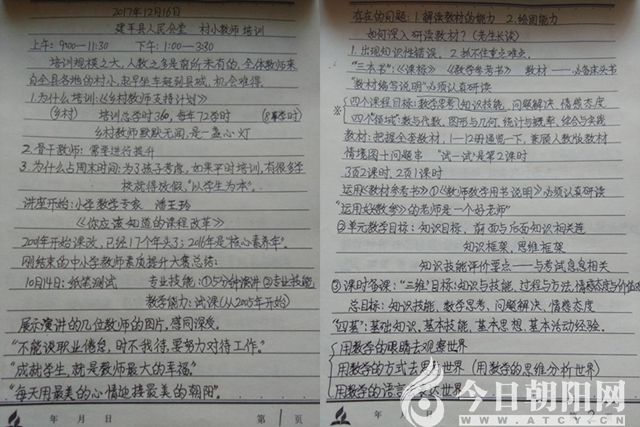 2017年12月16日
建平县人民会堂 村小教师培训
上午：9:00—11:30 下午：1:00—3:30
培训规模之大，人数之多是前所未有的，全体教师来
自全县各地的村小，起早坐车赶到县城，机会难得。
1.为什么培训：《乡村教师支持计划》
（乡村） 培训总学时360，每年72学时
乡村教师默默无闻，是一盏心灯
2.骨干教师：需要进行提升
3.为什么占周末时间：为了孩子考虑，如果平时培训，有很多学
校就得放假，“以学生为本”。
讲座开始：小学数学专家 潘玉玲
《你应该知道的课程改革》
2001年开始课改，已经17个年头了；2016年是“核心素养年”。
刚结束的中小学教师素质提升大赛总结：
10月14日：纸笔测试 专业技能：①5分钟演讲②专业技能
教学能力：试课（从2005年开始）
展示演讲的几位教师的图片，感同深受。
“不能谈职业倦怠，时不我待，要努力对待工作。”
“成就学生，就是教师最大的幸福。”
“每天用最美的心情迎接最美的朝阳”。
年 月 日 第 1 页
存在的问题：1.解读教材的能力 2.绘图能力
如何深入研读教材？（先生长读）
1.出现知识性错误，2.抓不住重点难点。
“三本书”：《课标》 《教学参考书》 教材——必备床头书
“教材编写说明”必须认真研读
※ 四个课程目标：数学思考 知识技能、问题解决、情感态度
四个领域：数与代数、图形与几何、统计与概率、综合与实践
教材：把握全套教材，1—12册通览一下，兼顾人教版教材
情境图+问题串 “试一试”是第2课时
3页2课时，2页1课时
运用《教材参考书》①《教师教学用书说明》必须认真研读
“运用好《教参》的老师是一个好老师”
②单元教学目标：知识目标，前面与后面知识相关连
知识框架，思维框架
知识技能评价要点——与考试息息相关
③课时备课：“三维”目标：知识与技能，过程与方法，情感态度与价值观
总目标：知识技能、数学思考、问题解决、情感态度
“四基”：基础知识、基本技能、基本思想、基本活动经验。
用数学的眼睛去观察世界
用数学的方式去思考世界（用数学的思维分析世界）
用数学的语言去表达世界
年 月 日
今日朝阳网
WWW.ATCY.CN